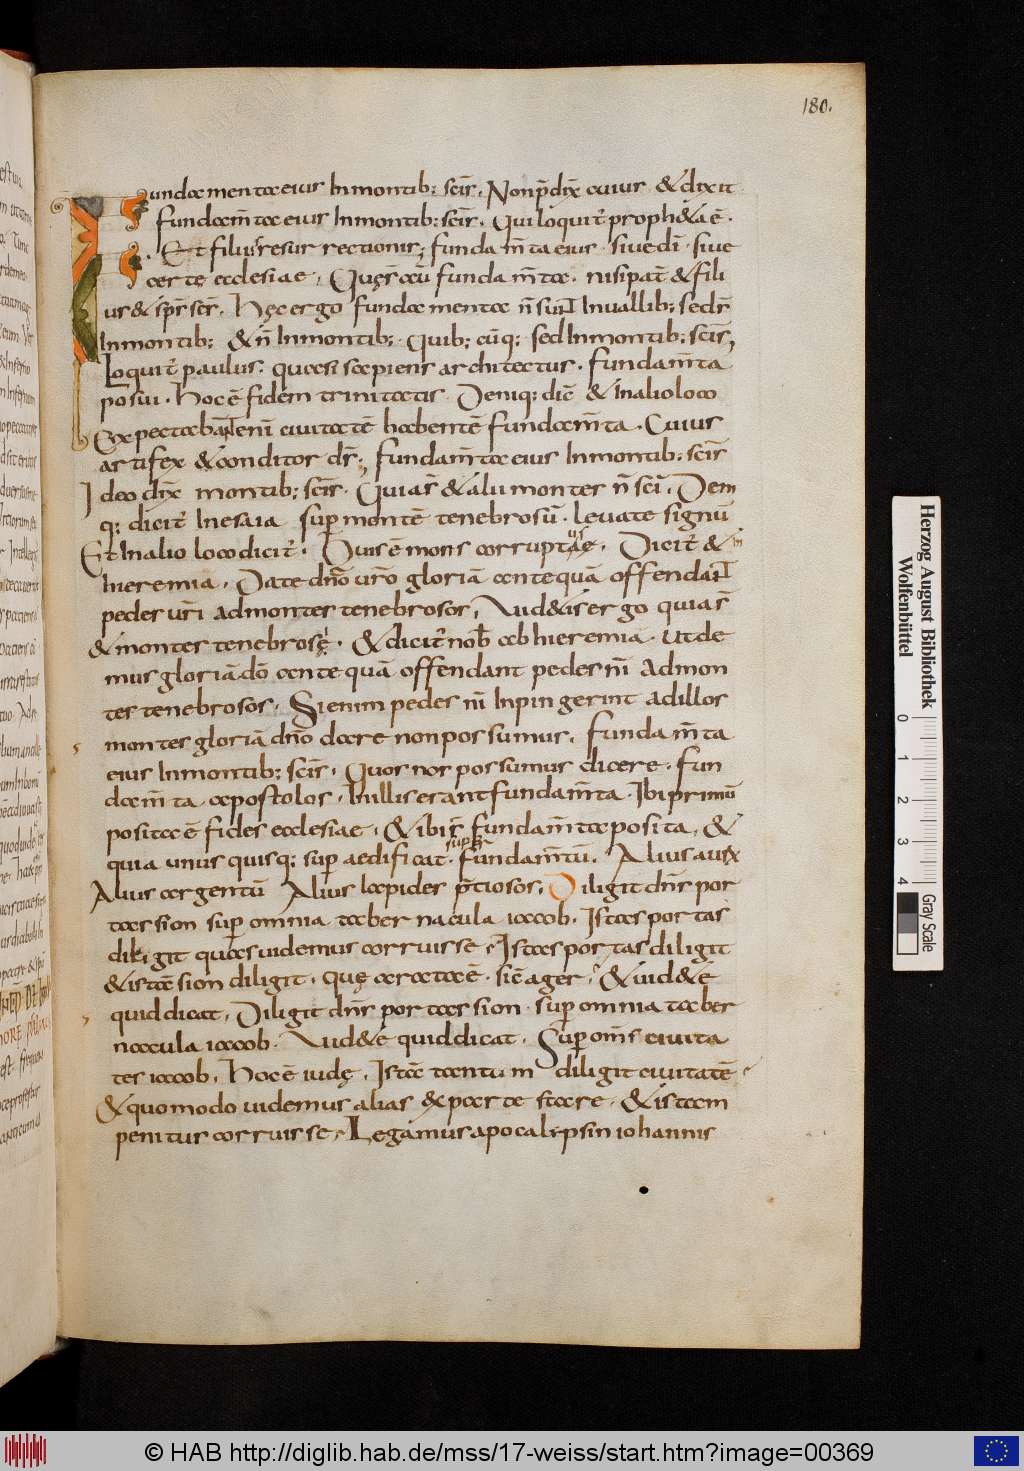 180.
Fundamenta eius In montib; scīs. Non p̄dix̄ cuius &dixit
fundam̄ta eius In montib; scīs. Qui loquit̄ proph&a ē.
Et filius resurrectionis; fundam̄ta eius. siue dī. siue
certe ecclesiae. Quę s̄ aū fundam̄ta. nisi pat̄ & fili
us & sp̄s scs̄. Hęc ergo fundamenta n̄ sunt In uallib; sed s̄
In montib; & n̄ In montib; quib; cūq; sed In montib; scīs,
Loquit̄ paulus. quasi sapiens architectus. fundam̄ta
posui. Hoc ē fidem trinitatis. Deniq; dic̄ & In alio loco
Expectabant enī ciuitatē habentē fundam̄ta. Cuius
artifex & conditor ds̄; fundam̄ta eius In montib; scīs
Ideo dix̄ montib; scīs. Quia s̄ & alii montes n̄ scī. Deni
q; dicit̄ In esaia sup montē tenebrosū. leuate signū
Et In alio loco dicit̄. Quis ē mons corruptus. Dicit̄ & In
hieremia. Date dn̄o ur̄o gloriā antequā offendant
pedes ur̄i ad montes tenebrosos. Aud&is ergo quia s̄
& montes tenebrosę. & dicit̄ nob̄ ab hieremia. ut de
mus gloriā dō ante quā offendant pedes nr̄i ad mon
tes tenebrosos. Si enim pedes nr̄i Inpingerint ad illos
montes gloriā dn̄o dare non possumus. fundam̄ta
eius In montib; scīs. Quos nos possumus dicere. fun
dam̄ta. apostolos. In illis erant fundam̄ta. Ibi primū
posita ē fides ecclesiae. & ibi s̄ fundam̄ta posita, &
quia unus quisq; sup aedificat. sup fundam̄tū. Alius aurū
Alius argentū Alius lapides p̄tiosos. Diligit dn̄s por
tas sion sup omnia tabernacula iacob. Istas portas
diligit quas uidemus corruisse. Istas portas diligit
& istā sion diligit. quę aratā ē. sic̄ ager. & uid&e
quid dicat, Diligit dn̄s portas sion. sup omnia taber
nacula iacob. Aud&e quid dicat. Sup om̄s ciuita
tes iacob. Hoc ē iudę. Istā tantum diligit ciuitatē
& quomodo uidemus alias ex parte stare. & istam
penitus corruisse. Legamus apocalipsin iohannis
Herzog August Bibliothek
Wolfenbüttel
0 1 2 3 4
Gray Scale
© HAB http://diglib.hab.de/mss/17-weiss/start.htm?image=00369